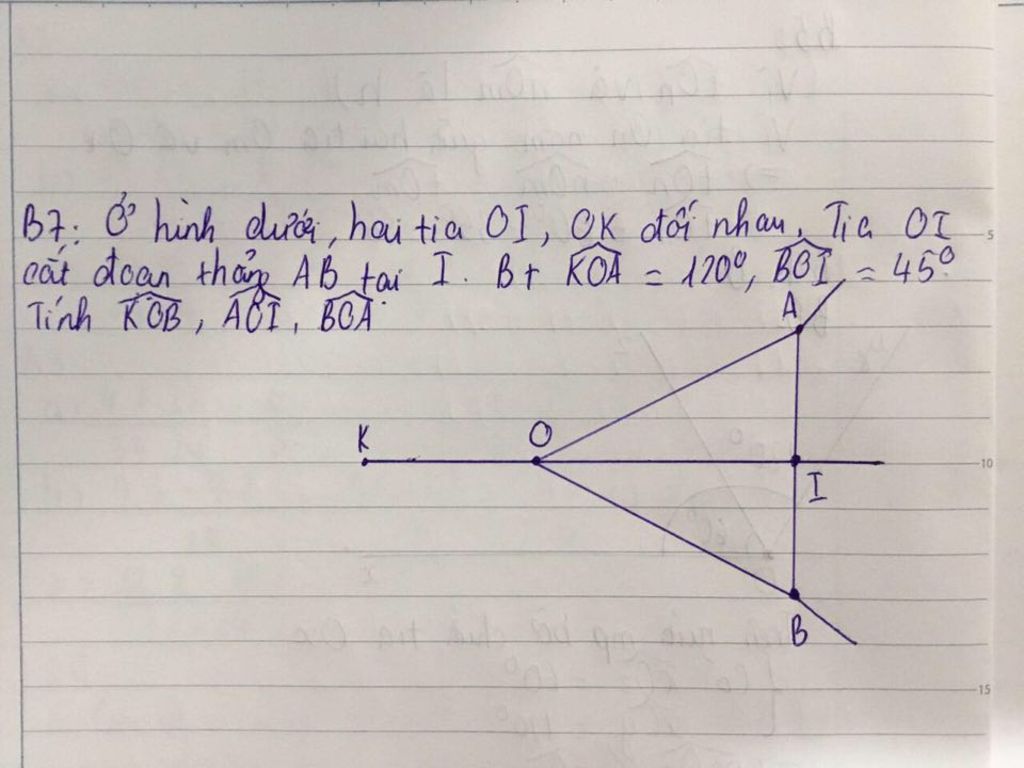 B7: Ở hình dưới, hai tia OI, OK đối nhau. Tia OI
cắt đoạn thẳng AB tại I. Bt K͡OA = 120⁰, B͡OI = 45⁰.
Tính K͡OB, A͡OI, B͡OA.
A
K
O
I
B
5
10
15